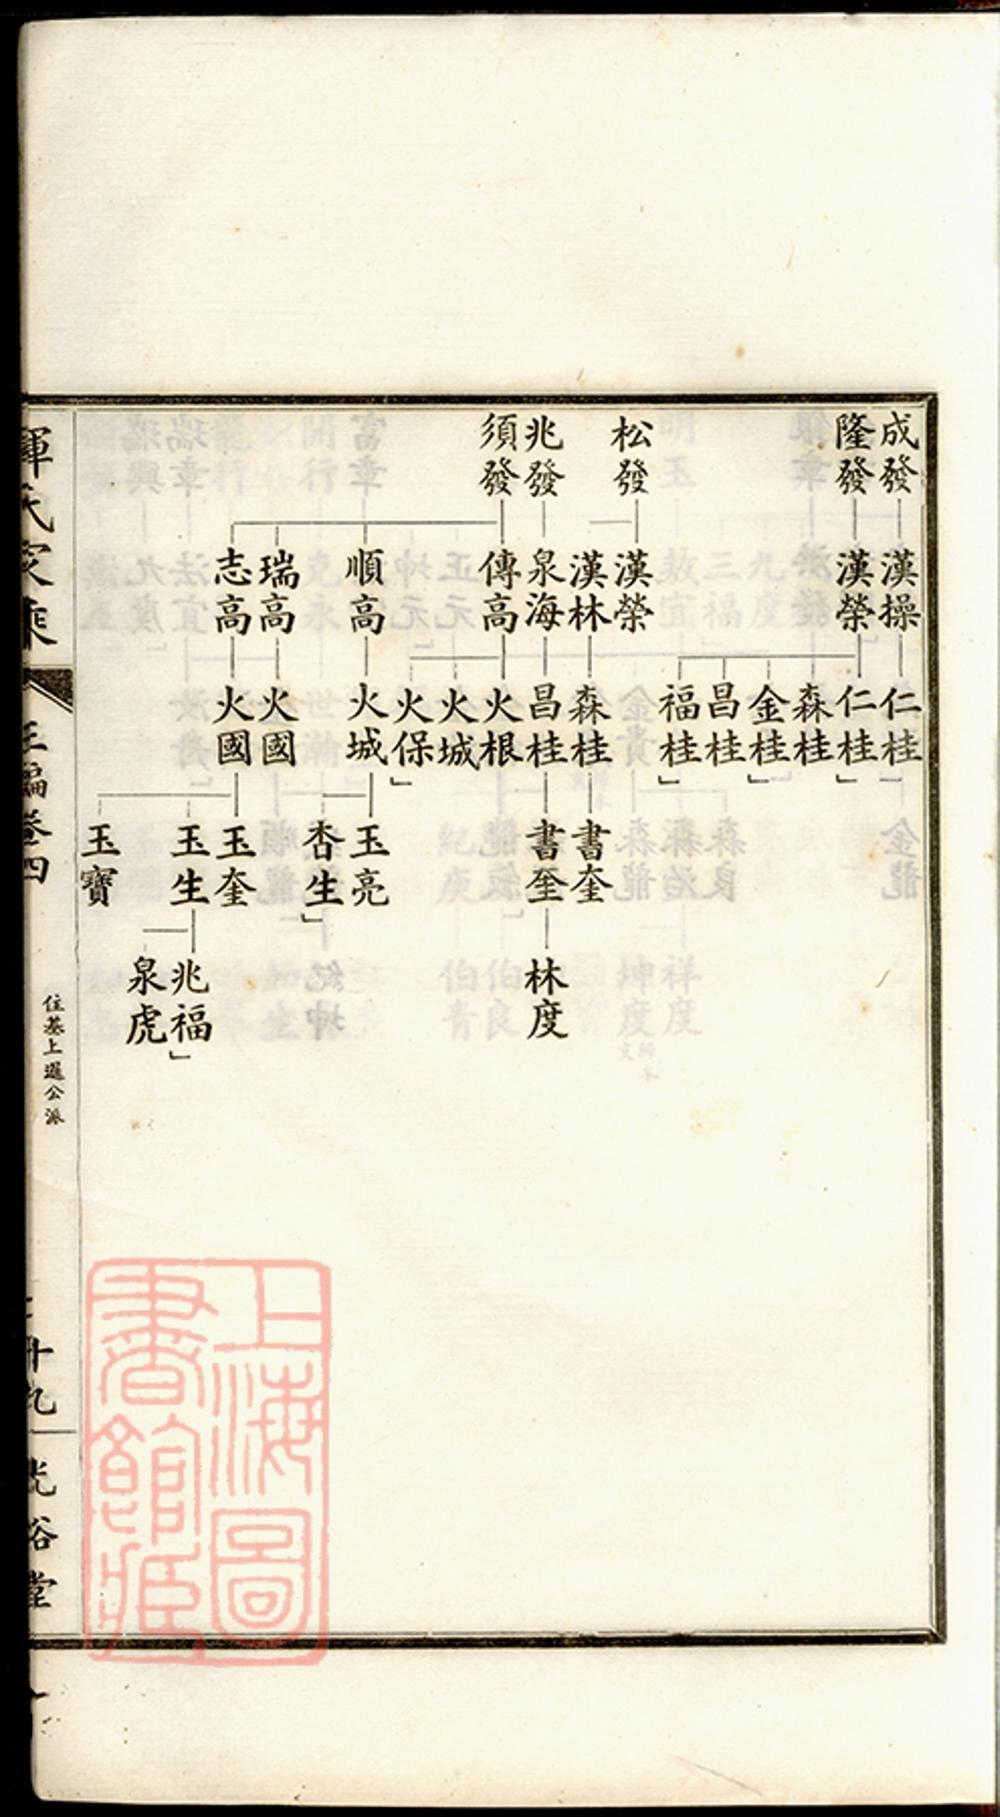 成發 隆發 松發 兆發 須發
漢操 漢榮 漢榮 漢林 泉海 傳高 順高 瑞高 志高
仁桂 仁桂 森桂 金桂 昌桂 福桂 森桂 昌桂 火根 火城 火保 火城 火國 火國
書奎 書奎 玉亮 杏生 玉奎 玉生 玉寶
林度 兆福 泉虎
惲氏家乘
正編卷四
住墓上遷公派
光裕堂
上海圖
書館藏